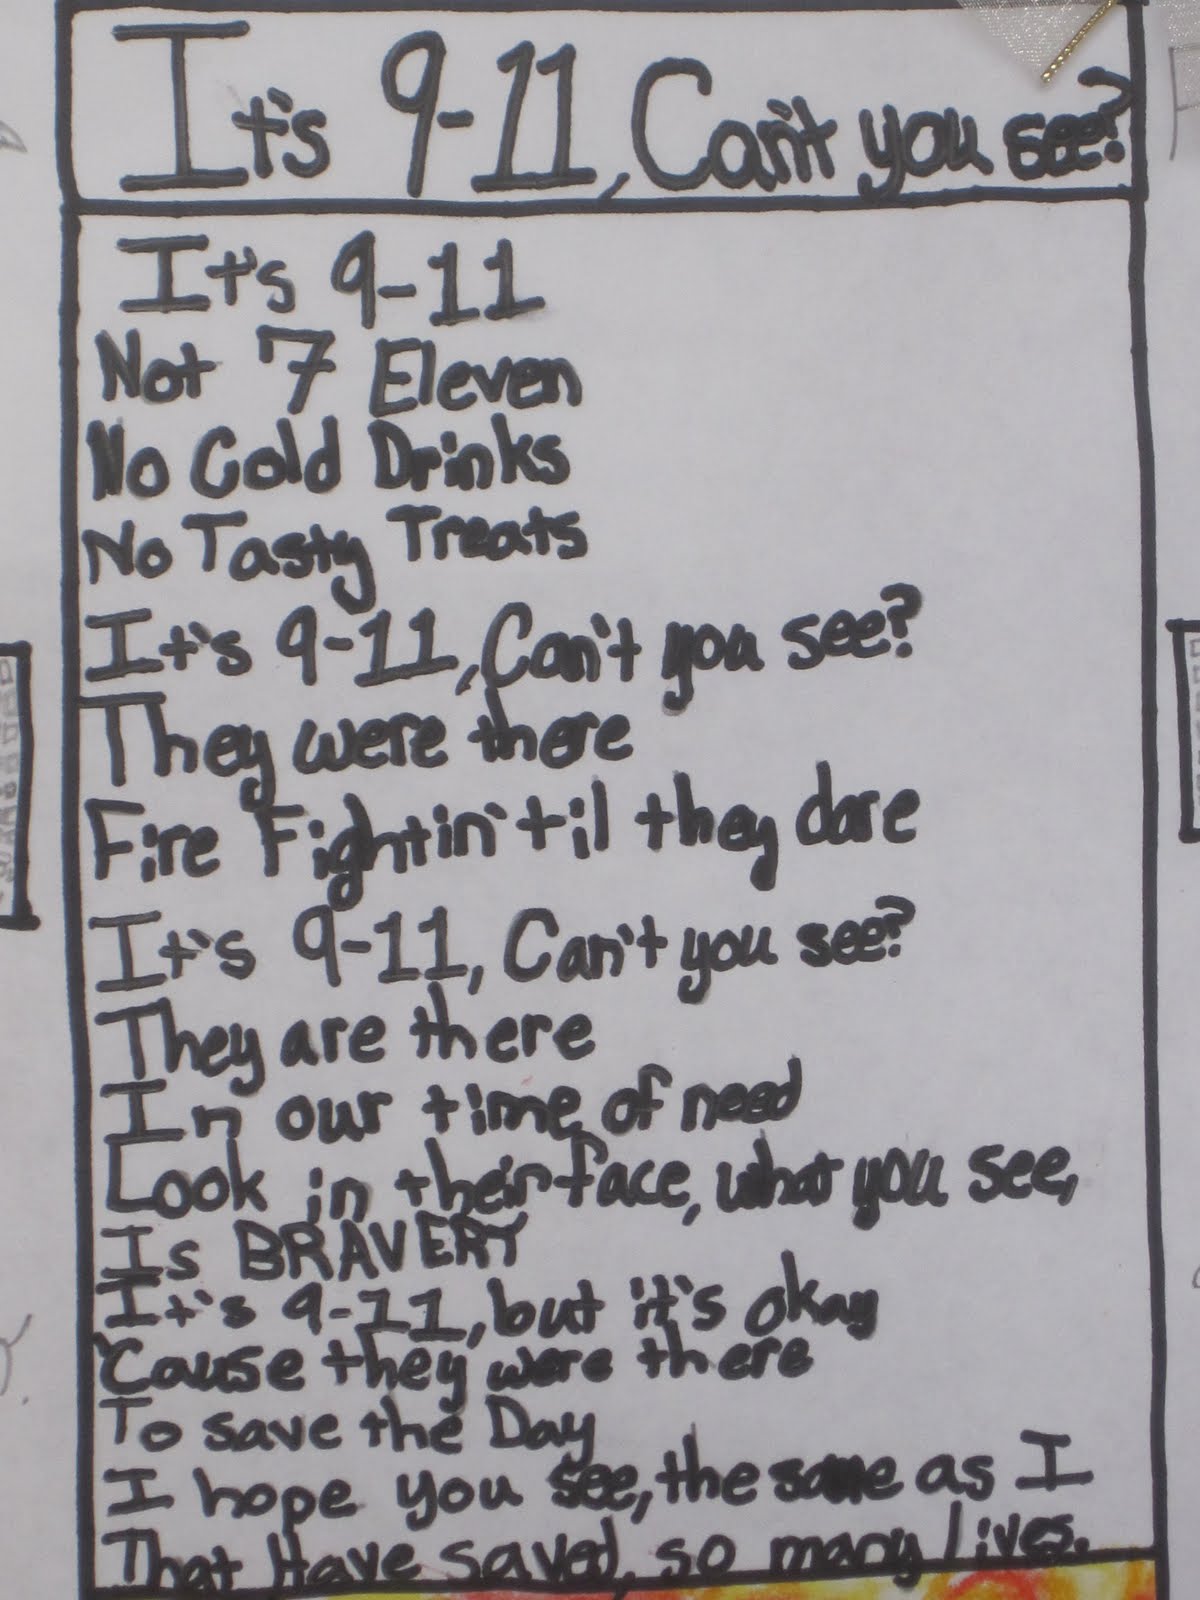 It's 9-11, Can't you see?
It's 9-11
Not 7 Eleven
No Cold Drinks
No Tasty Treats
It's 9-11, Can't you see?
They were there
Fire Fightin' til they dare
It's 9-11, Can't you see?
They are there
In our time of need
Look in their face, what you see,
Is BRAVERY
It's 9-11, but it's okay
'Cause they were there
To save the Day
I hope you see, the same as I
That Have saved, so many lives.